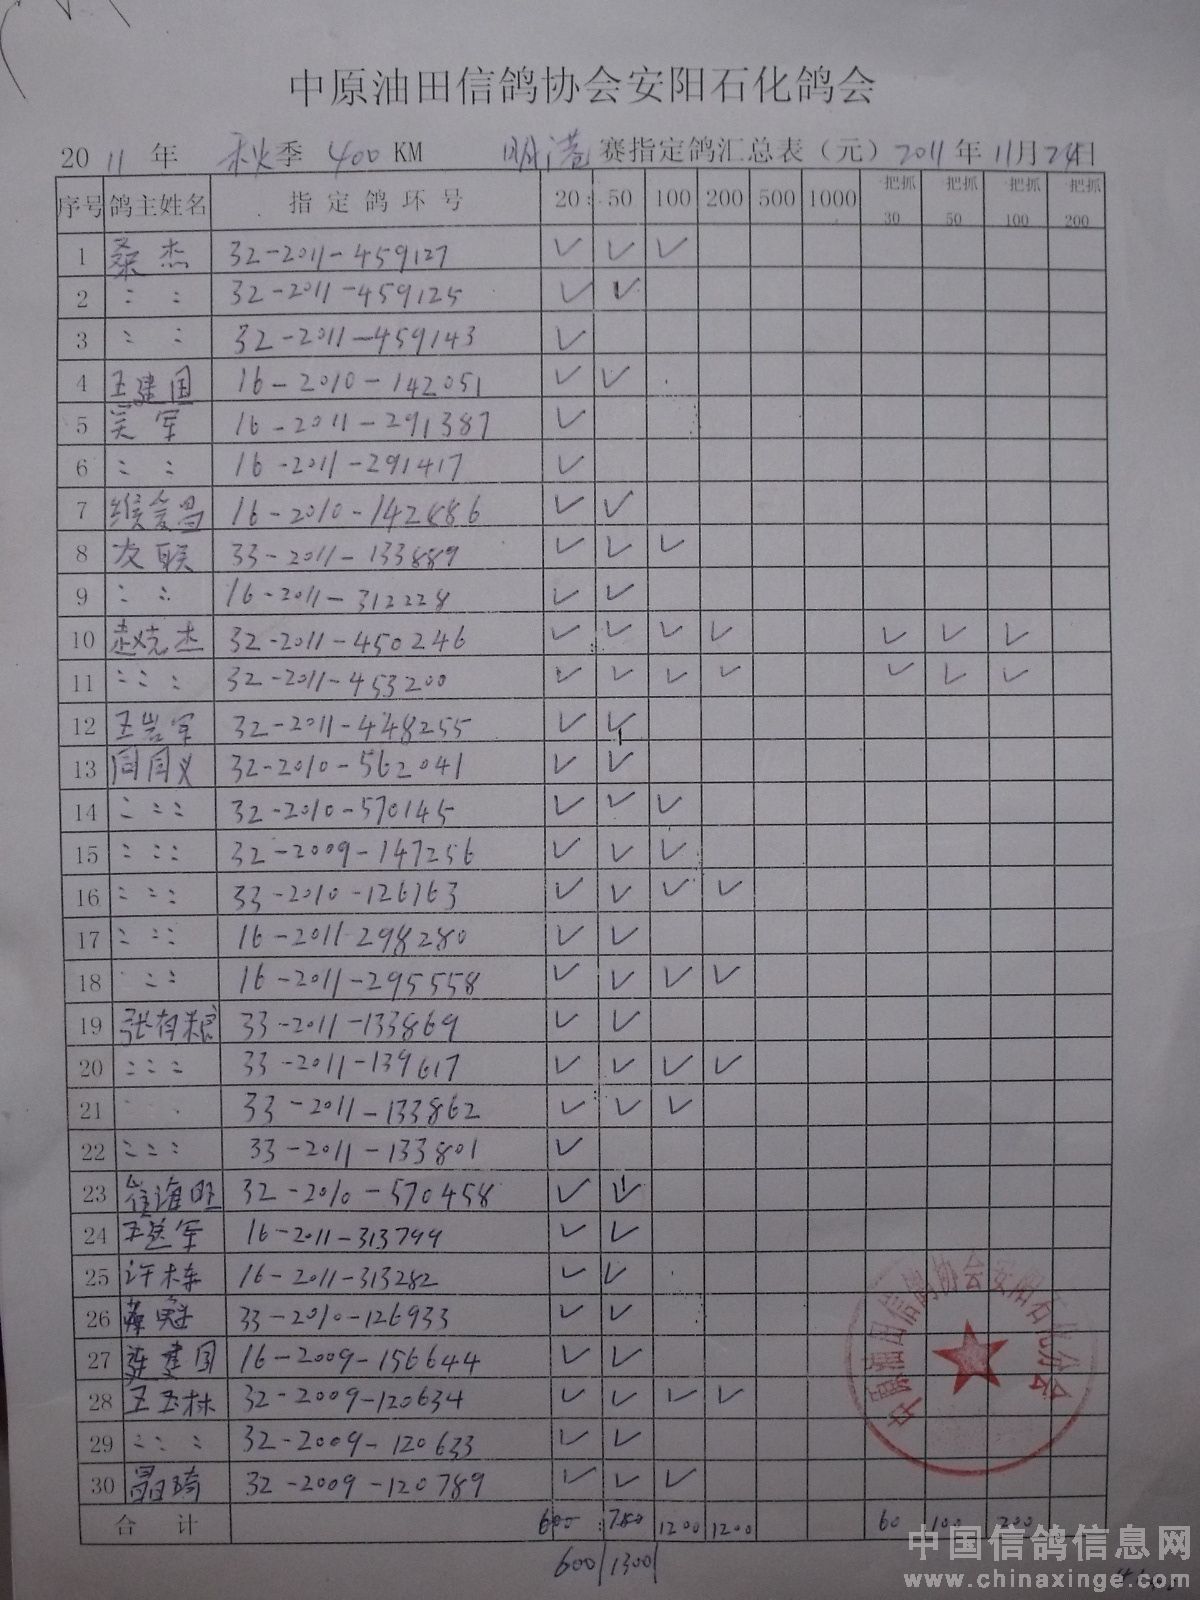 中原油田信鸽协会安阳石化鸽会
2011年 秋季 400 KM 明港 赛指定鸽汇总表（元）2011年11月24日
序号 鸽主姓名 指定鸽环号 20 50 100 200 500 1000 一把抓30 一把抓50 一把抓100 一把抓200
1 桑杰 32-2011-459127 ✓ ✓ ✓
2 〃 〃 32-2011-459125 ✓ ✓
3 〃 〃 32-2011-459143 ✓
4 王建国 16-2010-142051 ✓ ✓
5 吴军 16-2011-291387 ✓
6 〃 〃 16-2011-291417 ✓
7 16-2010-142886 ✓ ✓
8 友联 33-2011-133889 ✓ ✓ ✓
9 〃 〃 16-2011-312228 ✓ ✓
10 赵克杰 32-2011-450246 ✓ ✓ ✓ ✓ ✓ ✓ ✓
11 〃 〃 〃 32-2011-453200 ✓ ✓ ✓ ✓ ✓ ✓ ✓
12 王岩军 32-2011-448255 ✓ ✓
13 闫国义 32-2010-562041 ✓ ✓
14 〃 〃 〃 32-2010-570145 ✓ ✓ ✓
15 〃 〃 〃 32-2009-147256 ✓ ✓ ✓
16 〃 〃 〃 33-2010-126163 ✓ ✓ ✓ ✓
17 〃 〃 〃 16-2011-298280 ✓ ✓
18 〃 〃 16-2011-295558 ✓ ✓ ✓ ✓
19 张有粮 33-2011-133869 ✓ ✓
20 〃 〃 〃 33-2011-139617 ✓ ✓ ✓ ✓
21 33-2011-133862 ✓ ✓ ✓
22 〃 〃 〃 33-2011-133801 ✓
23 32-2010-570458 ✓ ✓
24 16-2011-313799 ✓ ✓
25 许栋 16-2011-313282 ✓ ✓
26 33-2010-126933 ✓ ✓
27 建国 16-2009-156644 ✓ ✓
28 王玉林 32-2009-120634 ✓ ✓ ✓ ✓
29 〃 〃 〃 32-2009-120633 ✓ ✓
30 32-2009-120789 ✓ ✓ ✓
合计 600 1200 1200 60 100 200
600 1300
中原油田信鸽协会安阳石化分会
中国信鸽信息网
www.chinaxinge.com